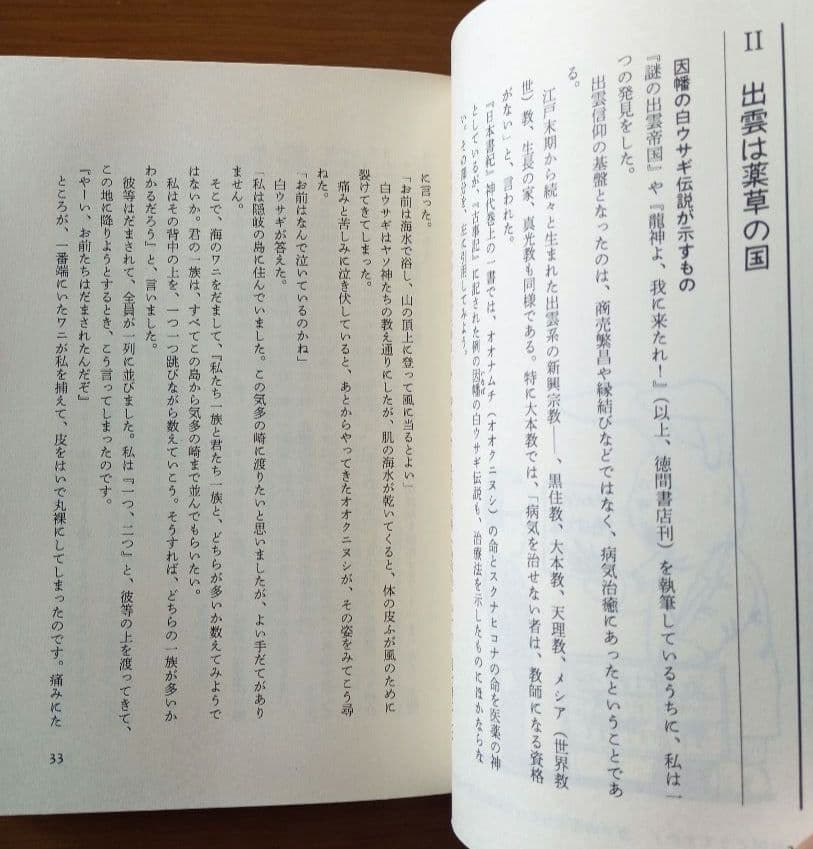 II 出雲は薬草の国
因幡の白ウサギ伝説が示すもの
『謎の出雲帝国』や『龍神よ、我に来たれ!』(以上、徳間書店刊)を執筆しているうちに、私は一
つの発見をした。
出雲信仰の基盤となったのは、商売繁昌や縁結びなどではなく、病気治癒にあったということであ
る。
江戸末期から続々と生まれた出雲系の新興宗教——、黒住教、大本教、天理教、メシア(世界救
世)教、生長の家、真光教も同様である。特に大本教では、「病気を治せない者は、教師になる資格
がない」と、言われた。
『日本書紀』神代巻上の一書では、オオナムチ(オオクニヌシ)の命とスクナヒコナの命を医薬の神
としているが、『古事記』に記された例の因幡の白ウサギ伝説も、治療法を示したものにほかならな
い。その部分を、左に引用してみよう。
に言った。
「お前は海水で浴し、山の頂上に登って風に当るとよい」
白ウサギはヤソ神たちの教え通りにしたが、肌の海水が乾いてくると、体の皮ふが風のために
裂けてきてしまった。
痛みと苦しみに泣き伏していると、あとからやってきたオオクニヌシが、その姿をみてこう尋
ねた。
「お前はなんで泣いているのかね」
白ウサギが答えた。
「私は隠岐の島に住んでいました。この気多の崎に渡りたいと思いましたが、よい手だてがあり
ません。
そこで、海のワニをだまして、『私たち一族と君たち一族と、どちらが多いか数えてみようで
はないか。君の一族は、すべてこの島から気多の崎まで並んでもらいたい。
私はその背中の上を、一つ一つ跳びながら数えていこう。そうすれば、どちらの一族が多いか
わかるだろう』と、言いました。
彼等はだまされて、全員が一列に並びました。私は『一つ、二つ』と、彼等の上を渡ってきて、
この地に降りようとするとき、こう言ってしまったのです。
『やーい、お前たちはだまされたんだぞ』
ところが、一番端にいたワニが私を捕えて、皮をはいで丸裸にしてしまったのです。痛みにた
33